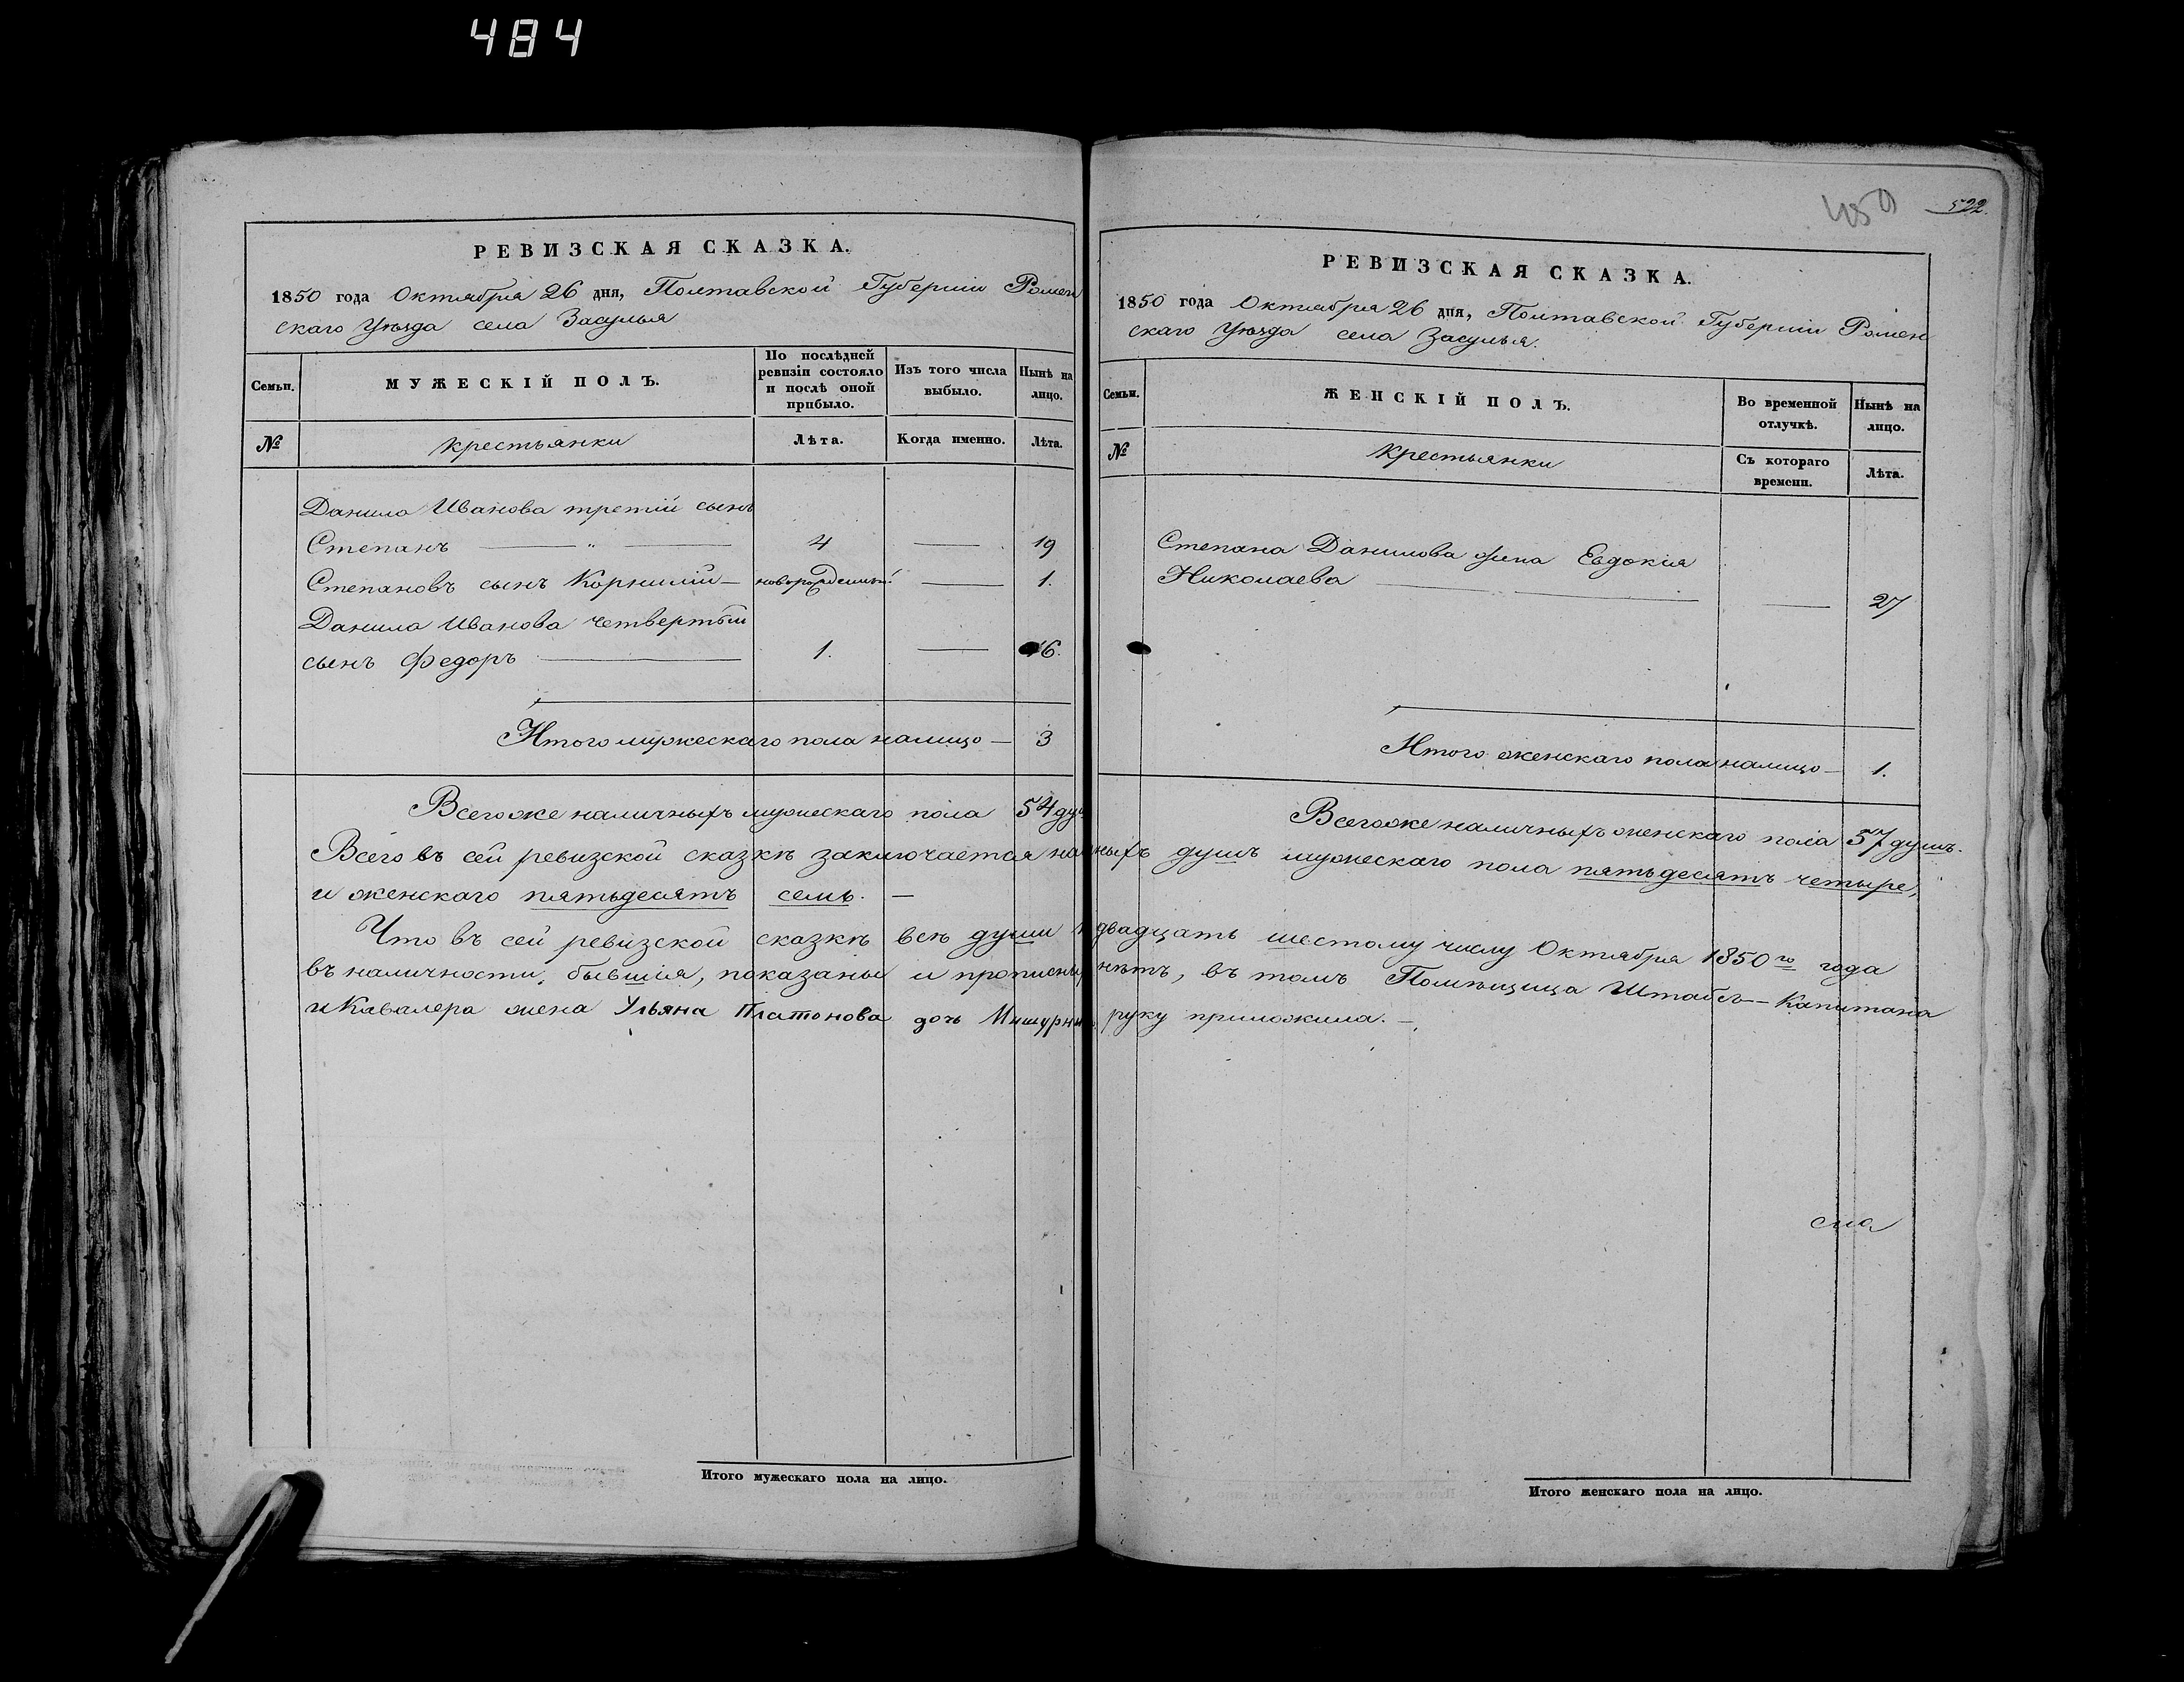 484
РЕВИЗСКАЯ СКАЗКА.
1850 года Октября 26 дня, Полтавской Губерніи Ромен
скаго Уѣзда села Засулья
Семьи.
МУЖЕСКІЙ ПОЛЪ.
По послѣдней ревизіи состояло и послѣ оной прибыло.
Изъ того числа выбыло.
Нынѣ на лицо.
№
крестьянки
Лѣта.
Когда именно.
Лѣта.
Данила Иванова третій сынъ
Степанъ — „ — 4 — 19
Степановъ сынъ Корнилій — новорожденный — 1.
Данила Иванова четвертый
сынъ Федоръ — 1. — 16.
Итого мужескаго пола налицо — 3
Всего же наличныхъ мужескаго пола 54 душ
Всего въ сей ревизской сказкѣ заключается на
и женскаго пятьдесятъ семь. —
Что въ сей ревизской сказкѣ всѣ души к
въ наличности, бывшія, показаны и прописны
и Кавалера жена Ульяна Платонова дочь
Итого мужескаго пола на лицо.
459
522.
РЕВИЗСКАЯ СКАЗКА.
1850 года Октября 26 дня, Полтавской Губерніи Ромен
скаго Уѣзда села Засулья.
Семьи.
ЖЕНСКІЙ ПОЛЪ.
Во временной отлучкѣ.
Нынѣ на лицо.
№
крестьянки
Съ котораго времени.
Лѣта.
Степана Данилова жена Евдокія
Николаева — — 27
Итого женскаго пола налицо — 1.
Всего же наличныхъ женскаго пола 57 душъ.
ныхъ душъ мужескаго пола пятьдесятъ четыре,
двадцать шестому числу Октября 1850го года
нѣтъ, въ томъ Помѣщица Штабсъ-Капитана
руку приложила. —
Итого женскаго пола на лицо.